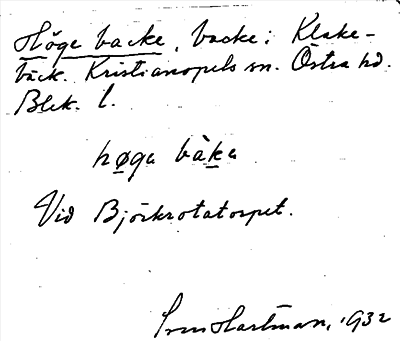 Höge backe, backe i Klake-
bäck. Kristianopels sn. Östra hd.
Blek. l.
høga bàka
Vid Björkrotatorpet.
Sven Hartman, 1932